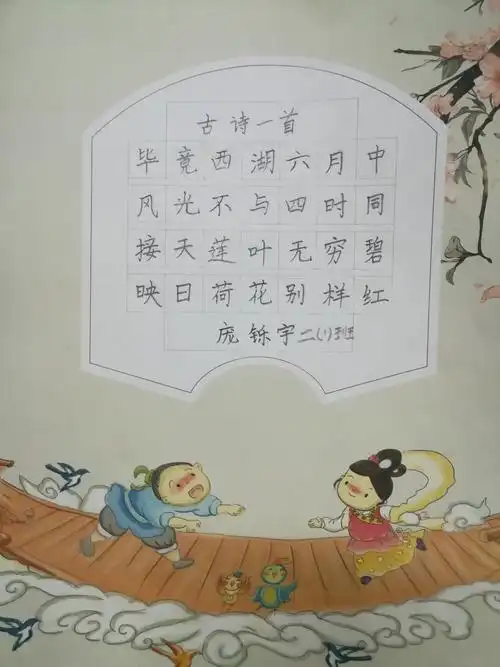 古诗一首
毕竟西湖六月中
风光不与四时同
接天莲叶无穷碧
映日荷花别样红
庞铄宇二(1)班